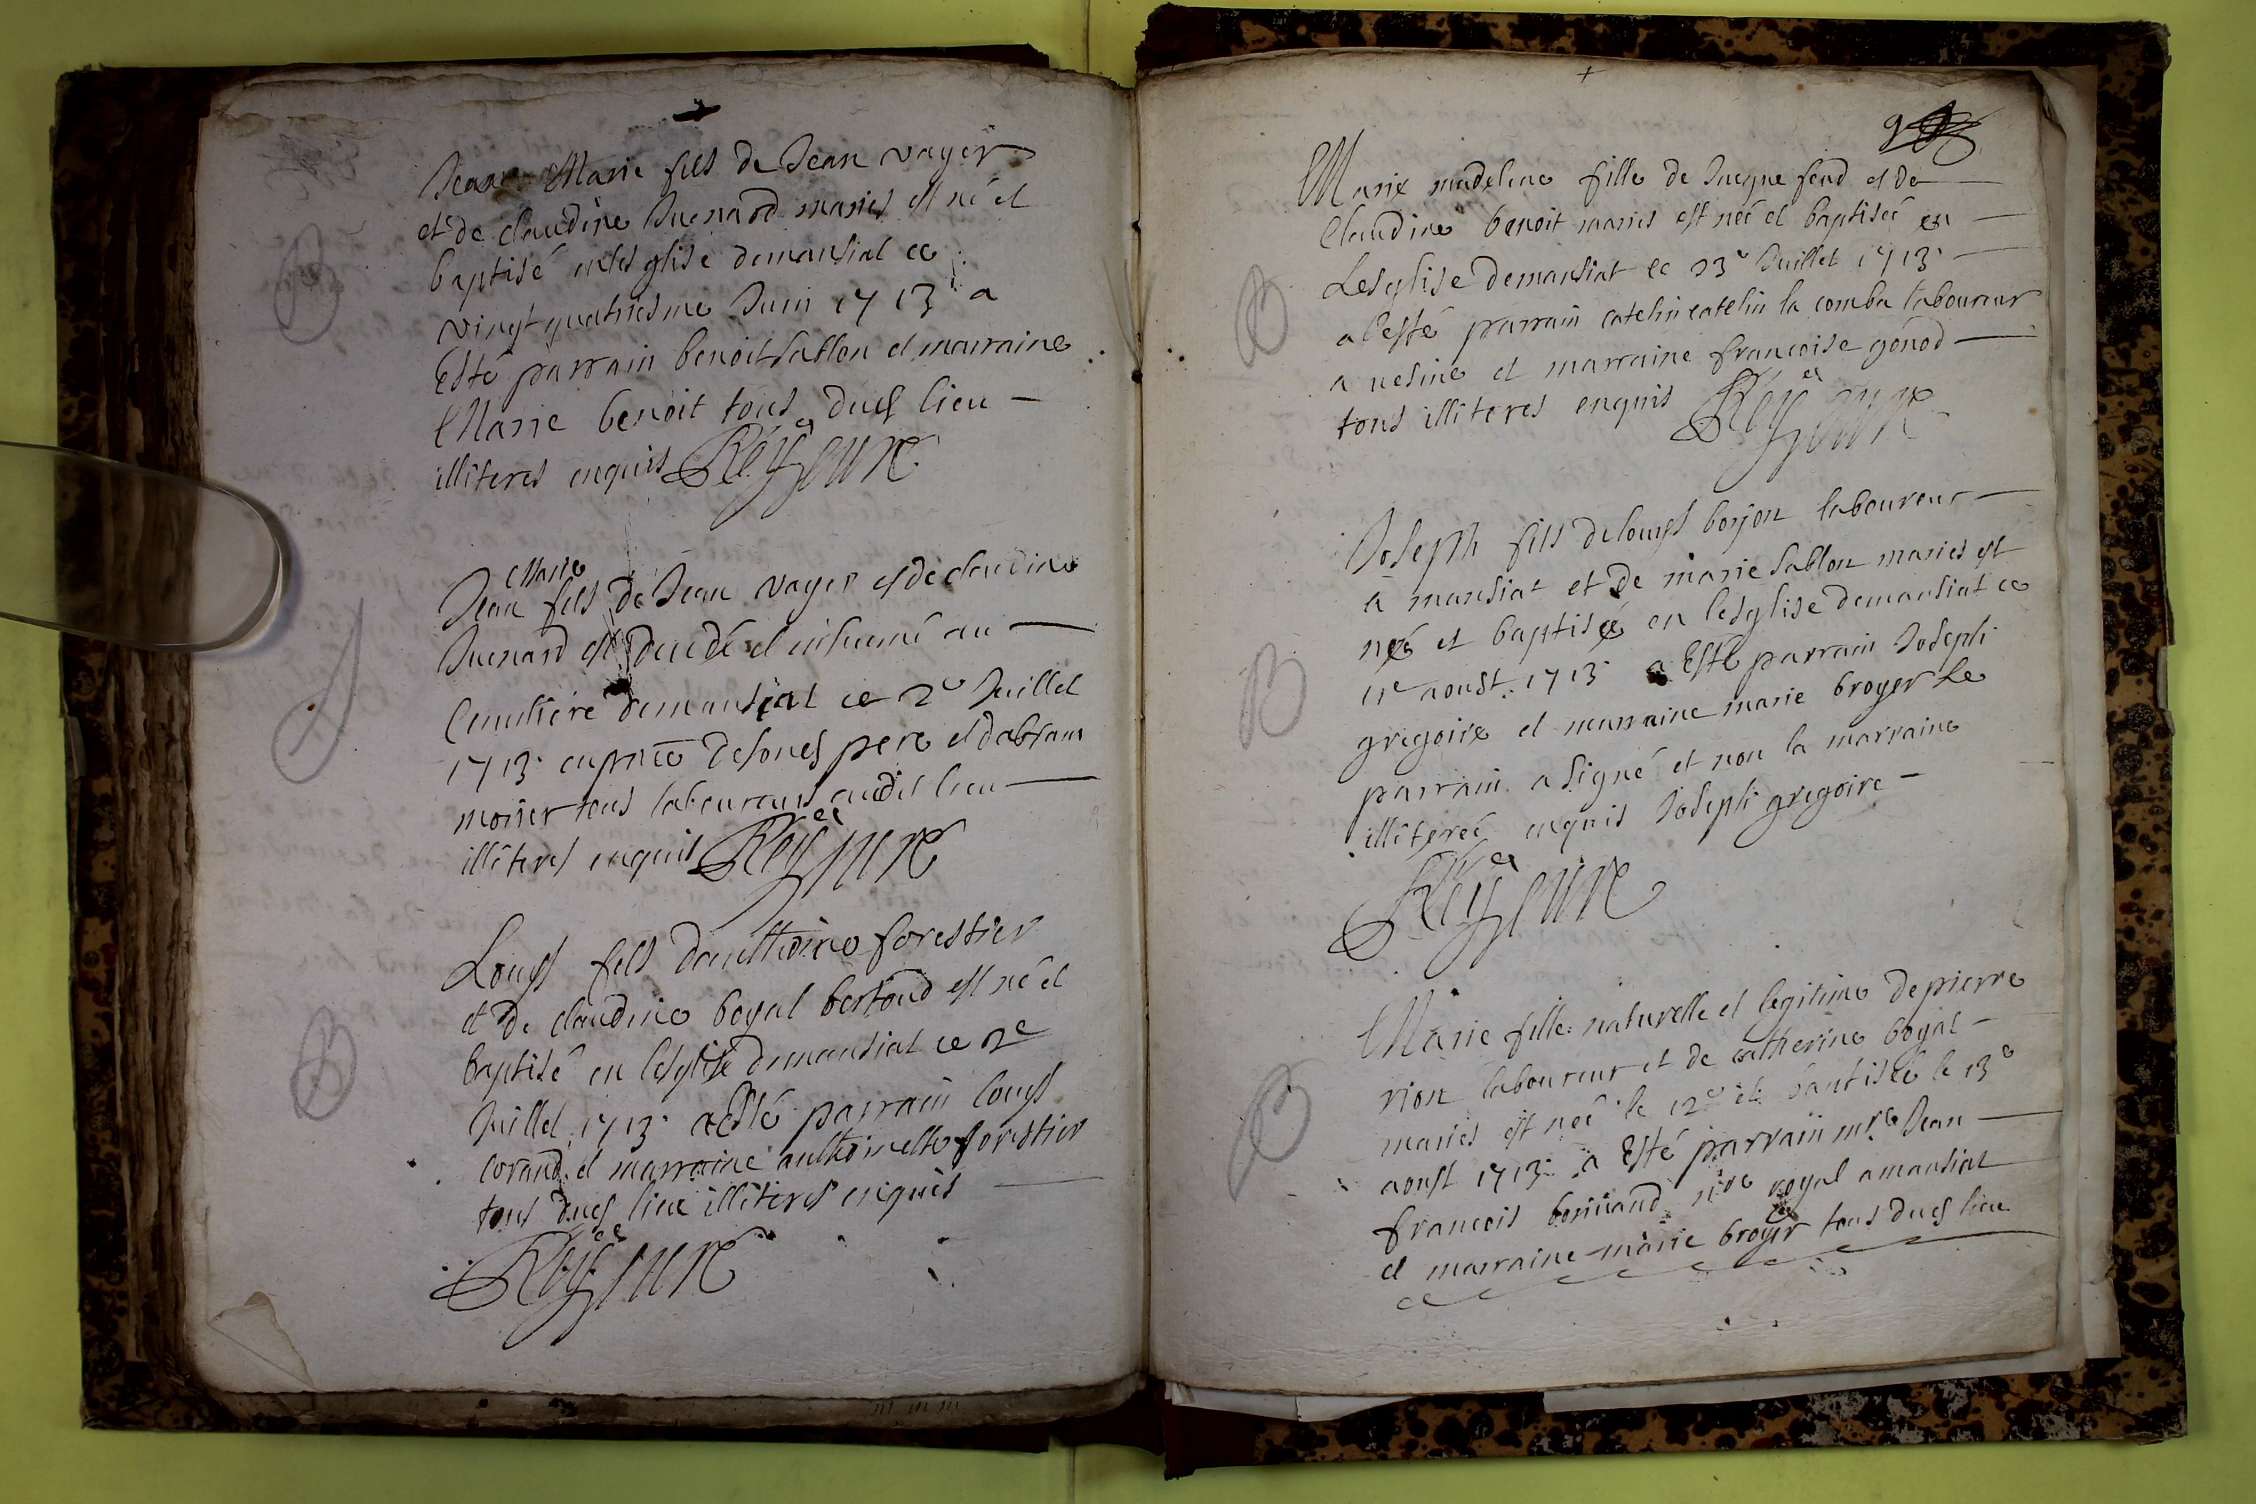 Jean Marie fils de Jean vayer
et de claudine Juenard mariés est né et
baptisé en lesglise demansiat ce
vingt quatriesme Juin 1713 a
Esté parrain benoit sablon et marraine
Marie benoit tous dud lieu
illiteres enquis Reÿ cure
B
Marie
Jean fils de Jean vayer et de claudine
Juenard est decedé et inhumé au
Cemitiere demansiat ce 2e Juillet
1713. en pnce desond pere et dabram
moiser tous laboureurs audit lieu
illiteres enquis Reÿ cure
Louys fils danthoine forestier
et de claudine boyal bertoud est né et
baptisé en lesglise demansiat ce 2e
Juillet 1713. a esté parrain Louys
corand et marraine anthoinette forestier
tous dud lieu illiteres enquis
Reÿ cure
B
Marie madeleine fille de Jacque feud et de
Claudine benoit mariés est neé et baptiseé en
Lesglise demansiat le 23e Juillet 1713.
a Esté parrain catelin catelin la comba laboureur
a uesine et marraine francoise gonod
tous illiteres enquis Reÿ cure
B
Joseph fils de louys borjon laboureur
a mansiat et de marie sablon mariés est
né et baptisé en lesglise demansiat ce
11e aoust 1713. a Esté parrain Joseph
gregoire et marraine marie broyer le
parrain a signé et non la marraine
illitereé enquis Joseph gregoire
Reÿ cure
B
Marie fille naturelle et legitime de pierre
rion laboureur et de catherine boyal
mariés est neé le 12e et bautisée le 13e
aoust 1713. a Esté parrain mre Jean
francois nre royal a mansiat
et marraine marie broyer tous dud lieu
B